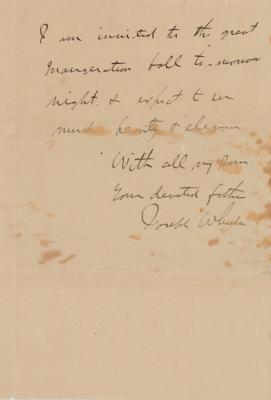 I am invited to the great
Inaugeration ball to-morrow
night. & expect to see
much beauty & elegance
With all my love
Your devoted father
Joseph Wheeler